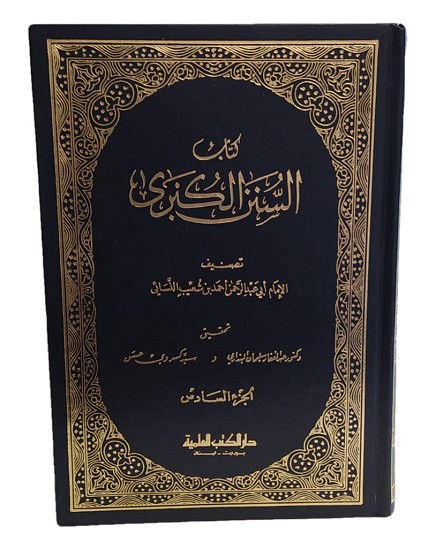 كتاب
السنن الكبرى
تصنيف
الإمام أبي عبد الرحمن أحمد بن شعيب النسائي
تحقيق
دكتور عبد الغفار سليمان البنداري و سيد كسروي حسن
الجزء السادس
دار الكتب العلمية
بيروت - لبنان